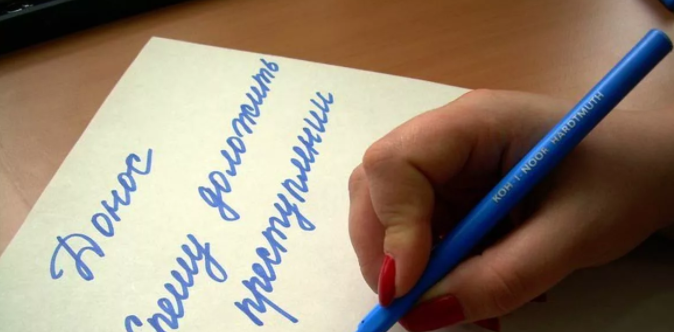 Донос
Спешу доложить
преступлении
KOH-I-NOOR HARDTMUTH